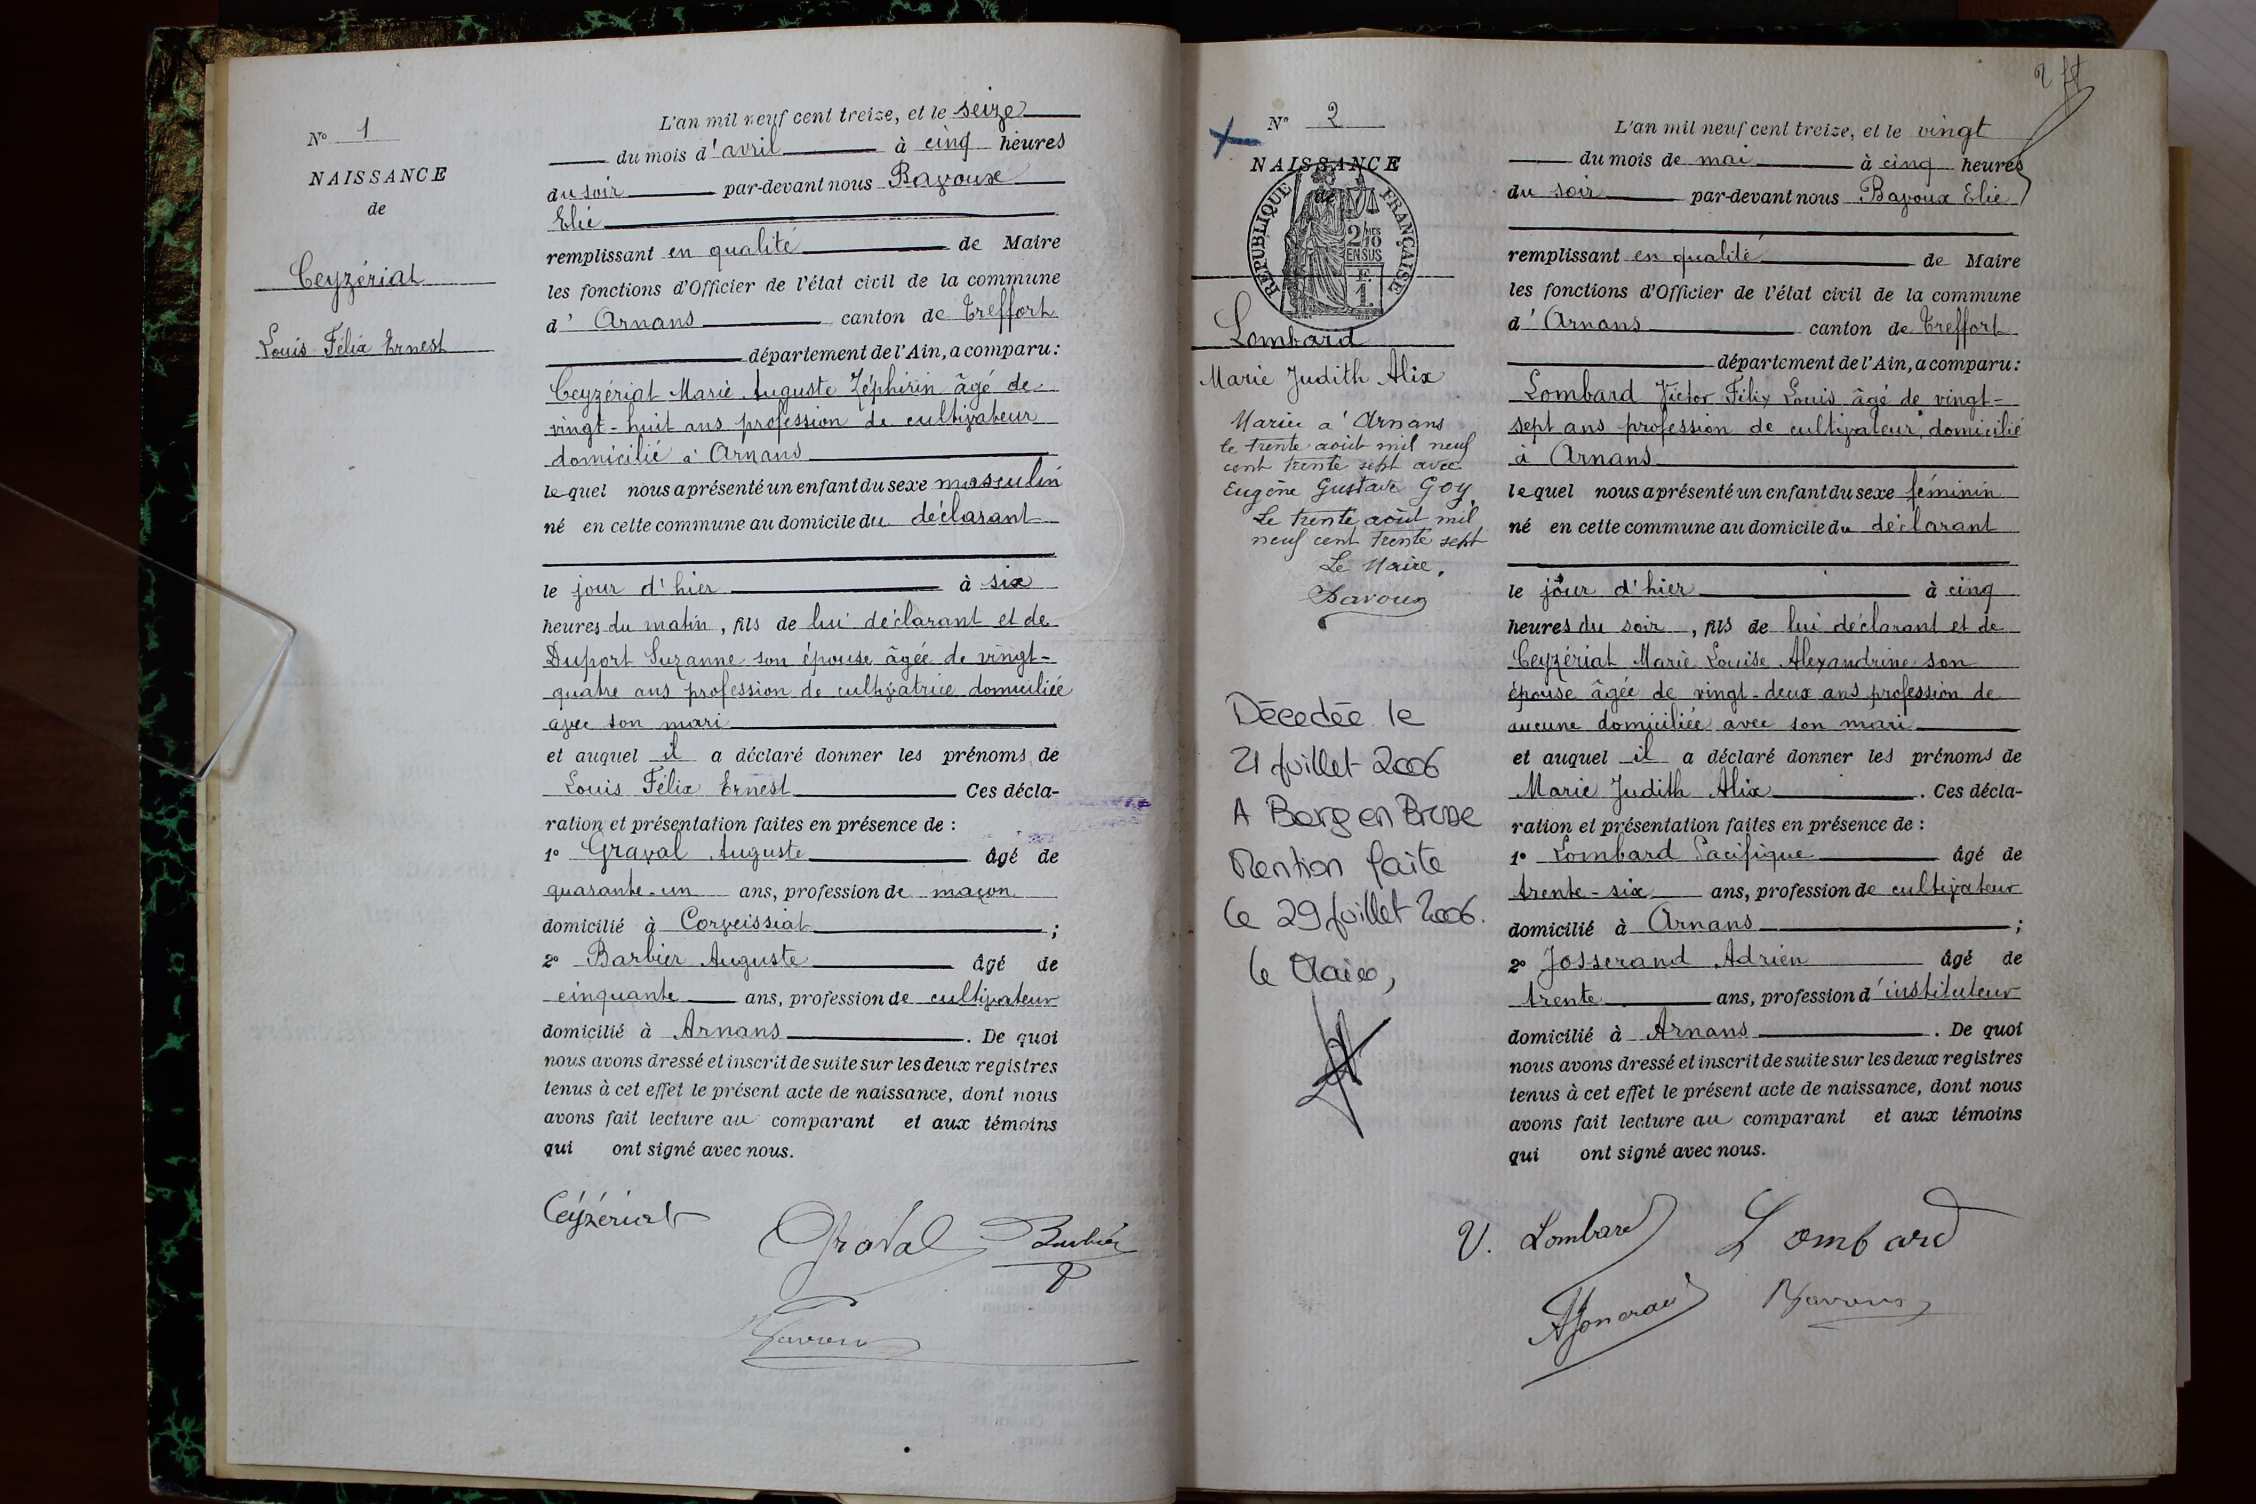 N° 1
NAISSANCE
de
Ceyzériat
Louis Félix Ernest
L'an mil neuf cent treize, et le seize
du mois d'avril à cinq heures
du soir par-devant nous Bavoux
Elie
remplissant en qualité de Maire
les fonctions d'Officier de l'état civil de la commune
d' Arnans canton de Treffort
département de l'Ain, a comparu :
Ceyzériat Marie Auguste Zéphirin âgé de
vingt-huit ans profession de cultivateur
domicilié à Arnans
lequel nous a présenté un enfant du sexe masculin
né en cette commune au domicile du déclarant
le jour d'hier à six
heures du matin, fils de lui déclarant et de
Duport Suzanne son épouse âgée de vingt-
quatre ans profession de cultivatrice domiciliée
avec son mari
et auquel il a déclaré donner les prénoms de
Louis Félix Ernest Ces décla-
ration et présentation faites en présence de :
1° Graval Auguste âgé de
quarante-un ans, profession de maçon
domicilié à Corveissiat ;
2° Barbier Auguste âgé de
cinquante ans, profession de cultivateur
domicilié à Arnans . De quoi
nous avons dressé et inscrit de suite sur les deux registres
tenus à cet effet le présent acte de naissance, dont nous
avons fait lecture au comparant et aux témoins
qui ont signé avec nous.
Ceyzériat
Graval Barbier
Bavoux
2
N° 2
NAISSANCE
de
REPUBLIQUE FRANÇAISE
2/10
EN SUS
F.
1.
Lombard
Marie Judith Alix
Mariée à Arnans
le trente août mil neuf
cent trente sept avec
Eugène Gustave Goy.
Le trente août mil
neuf cent trente sept
Le Maire,
Bavoux
Décedée le
21 juillet 2006
A Bourg en Bresse
Mention faite
le 29 juillet 2006.
le Maire,
L'an mil neuf cent treize, et le vingt
du mois de mai à cinq heures
du soir par-devant nous Bavoux Elie
remplissant en qualité de Maire
les fonctions d'Officier de l'état civil de la commune
d' Arnans canton de Treffort
département de l'Ain, a comparu :
Lombard Victor Félix Louis âgé de vingt-
sept ans profession de cultivateur, domicilié
à Arnans
lequel nous a présenté un enfant du sexe féminin
né en cette commune au domicile du déclarant
le jour d'hier à cinq
heures du soir, fils de lui déclarant et de
Ceyzériat Marie Louise Alexandrine son
épouse âgée de vingt-deux ans profession de
aucune domiciliée avec son mari
et auquel il a déclaré donner les prénoms de
Marie Judith Alix . Ces décla-
ration et présentation faites en présence de :
1° Lombard Pacifique âgé de
trente-six ans, profession de cultivateur
domicilié à Arnans ;
2° Josserand Adrien âgé de
trente ans, profession d'instituteur
domicilié à Arnans . De quoi
nous avons dressé et inscrit de suite sur les deux registres
tenus à cet effet le présent acte de naissance, dont nous
avons fait lecture au comparant et aux témoins
qui ont signé avec nous.
V. Lombard Lombard
AJosserand Bavoux